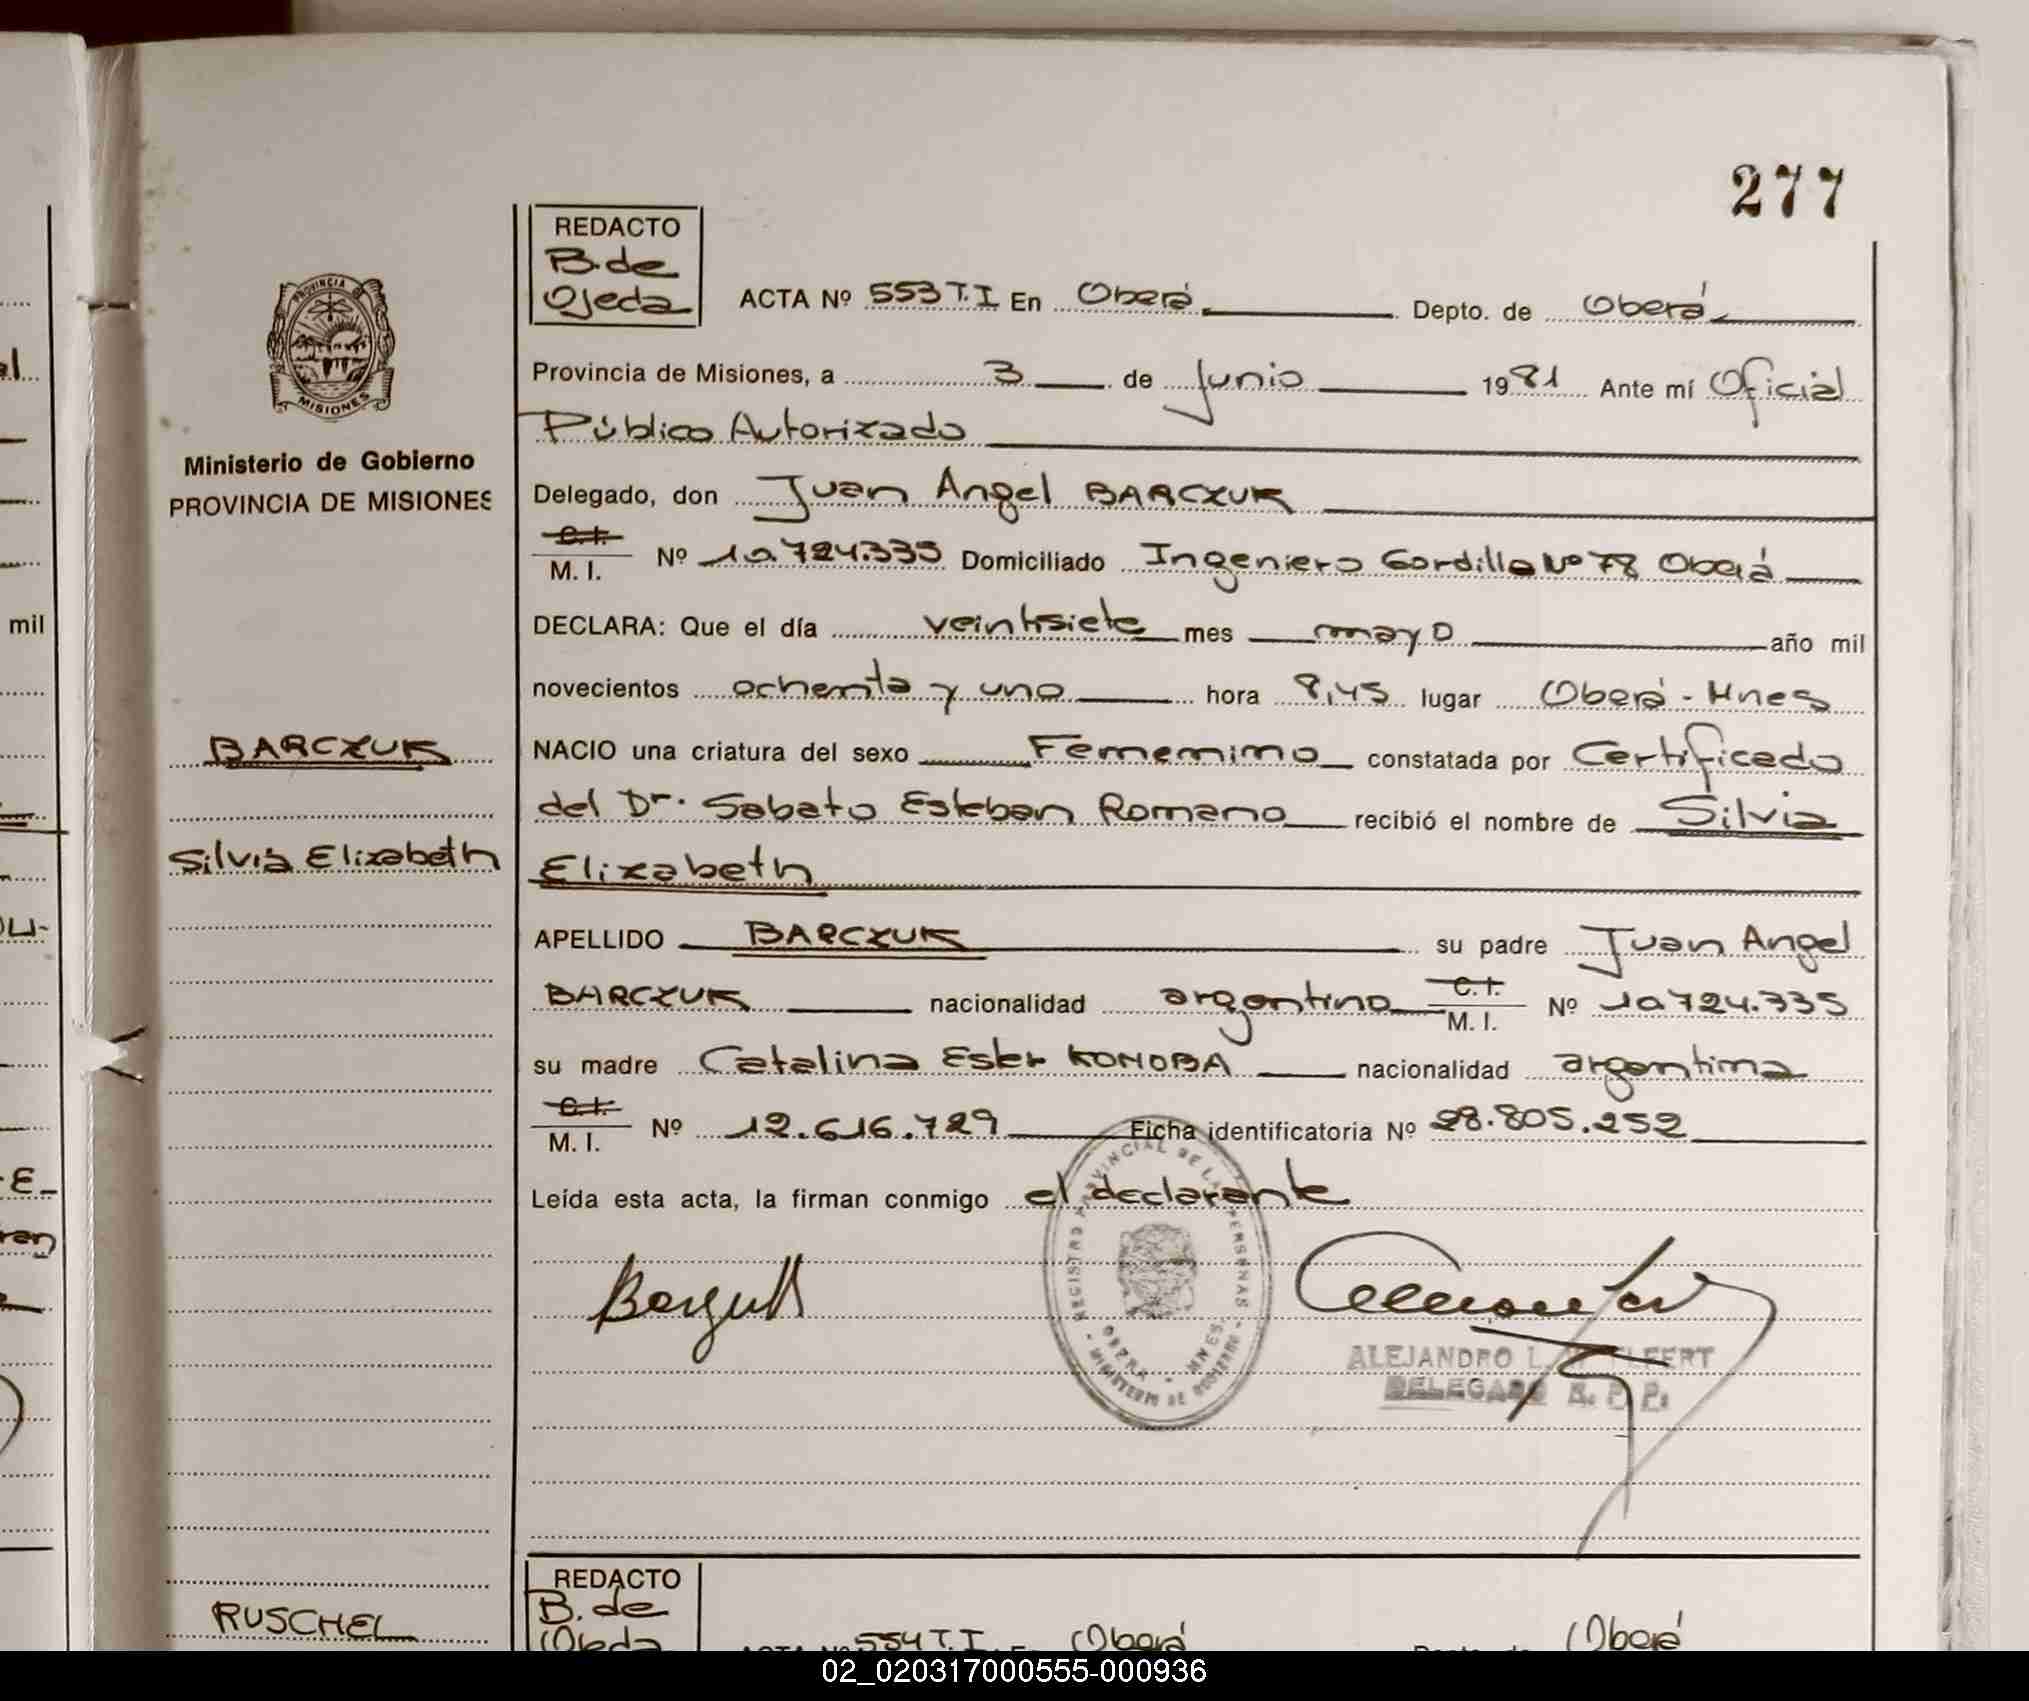 277
REDACTO
B. de
Ojeda
ACTA Nº 553 T. I En Oberá Depto. de Oberá
PROVINCIA
MISIONES
Provincia de Misiones, a 3 de Junio 1981 Ante mí Oficial
Público Autorizado
Ministerio de Gobierno
PROVINCIA DE MISIONES
Delegado, don Juan Angel BARCZUK
C. I.
M. I. Nº 10.724.335 Domiciliado Ingeniero Gordillo Nº 78 Oberá
mil
DECLARA: Que el día veintisiete mes mayo año mil
novecientos ochenta y uno hora 8,45 lugar Oberá - Mnes
BARCZUK
NACIO una criatura del sexo Femenino constatada por Certificado
del Dr. Sabato Esteban Romano recibió el nombre de Silvia
Silvia Elizabeth
Elizabeth
APELLIDO BARCZUK su padre Juan Angel
BARCZUK nacionalidad argentino C. I.
M. I. Nº 10.724.335
su madre Catalina Ester KONOBA nacionalidad argentina
C. I.
M. I. Nº 12.616.729 Ficha identificatoria Nº 28.805.252
Leída esta acta, la firman conmigo el declarante
REGISTRO PROVINCIAL DE LAS PERSONAS
OBERA - MNES.
MINISTERIO DE GOBIERNO
ALEJANDRO L.
DELEGADO R. P. P.
REDACTO
B. de
Ojeda
RUSCHEL
ACTA Nº 554 T. I En Oberá Depto. de Oberá
02_020317000555-000936